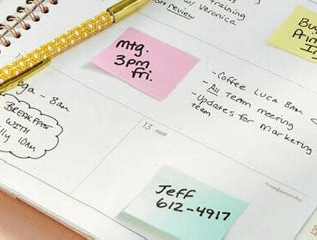 Training
w/ Veronica
on review
Mtg.
3pm
Fri.
Bu
- 8am
BREAKFAST
WITH
10am
-Coffee Luca 8am
-All Team meeting
-Updates for Marketing
team
13
Jeff
612-4917